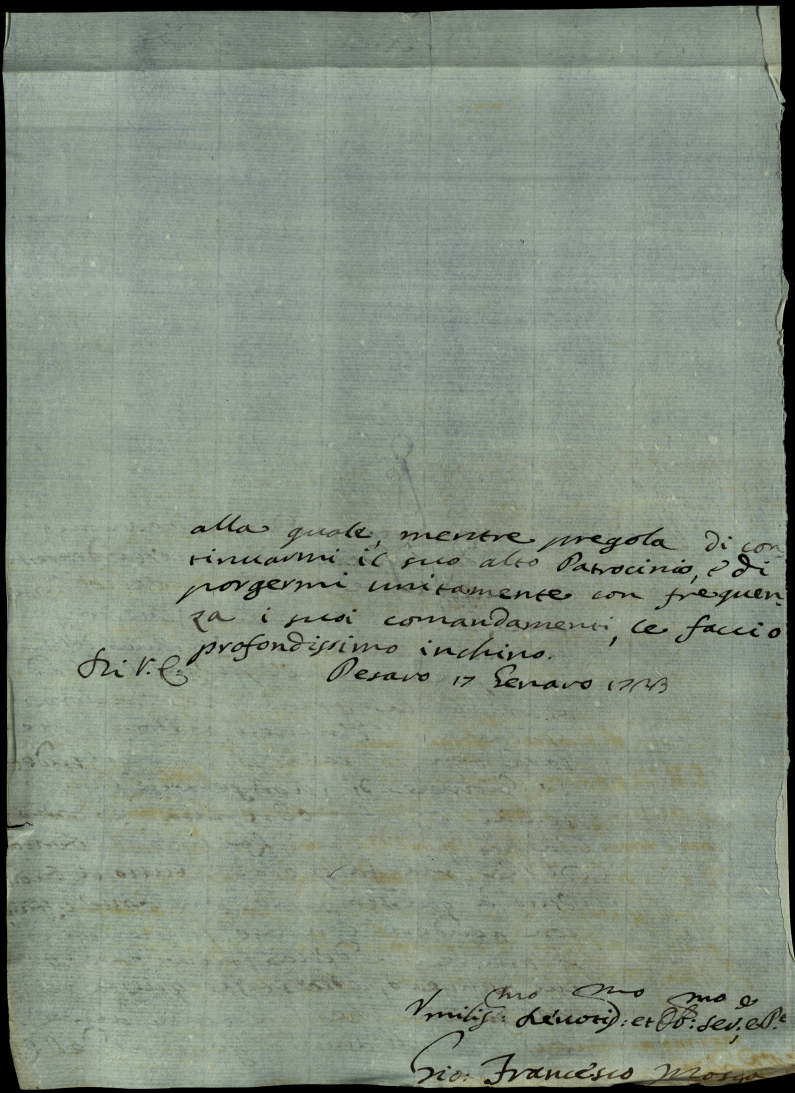 alla quale, mentre pregola di con
tinuarmi il suo alto Patrocinio, e di
porgermi unitamente con frequen-
za i suoi comandamenti, le faccio
profondissimo inchino.
Di V. E. Pesaro 17 Genaro
Umilis:mo Devotis:mo et Ob:mo Ser:e, e P.
Gio: Francesco Mosca